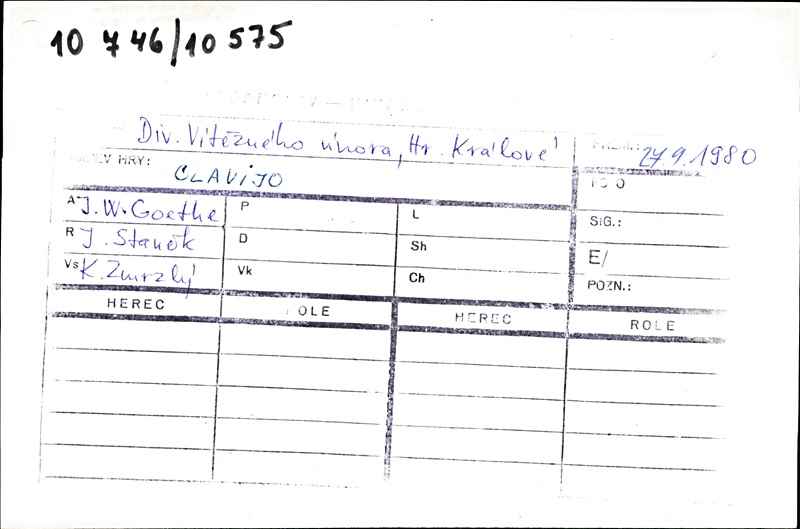 10 746/10 575
Div. Vítězného února, Hr. Králové
27.9.1980
HRY:
CLAVIJO
A J. W. Goethe P L SIG.:
R J. Staněk D Sh E/
Vs K. Zmrzlý Vk Ch POZN.:
HEREC OLE HEREC ROLE